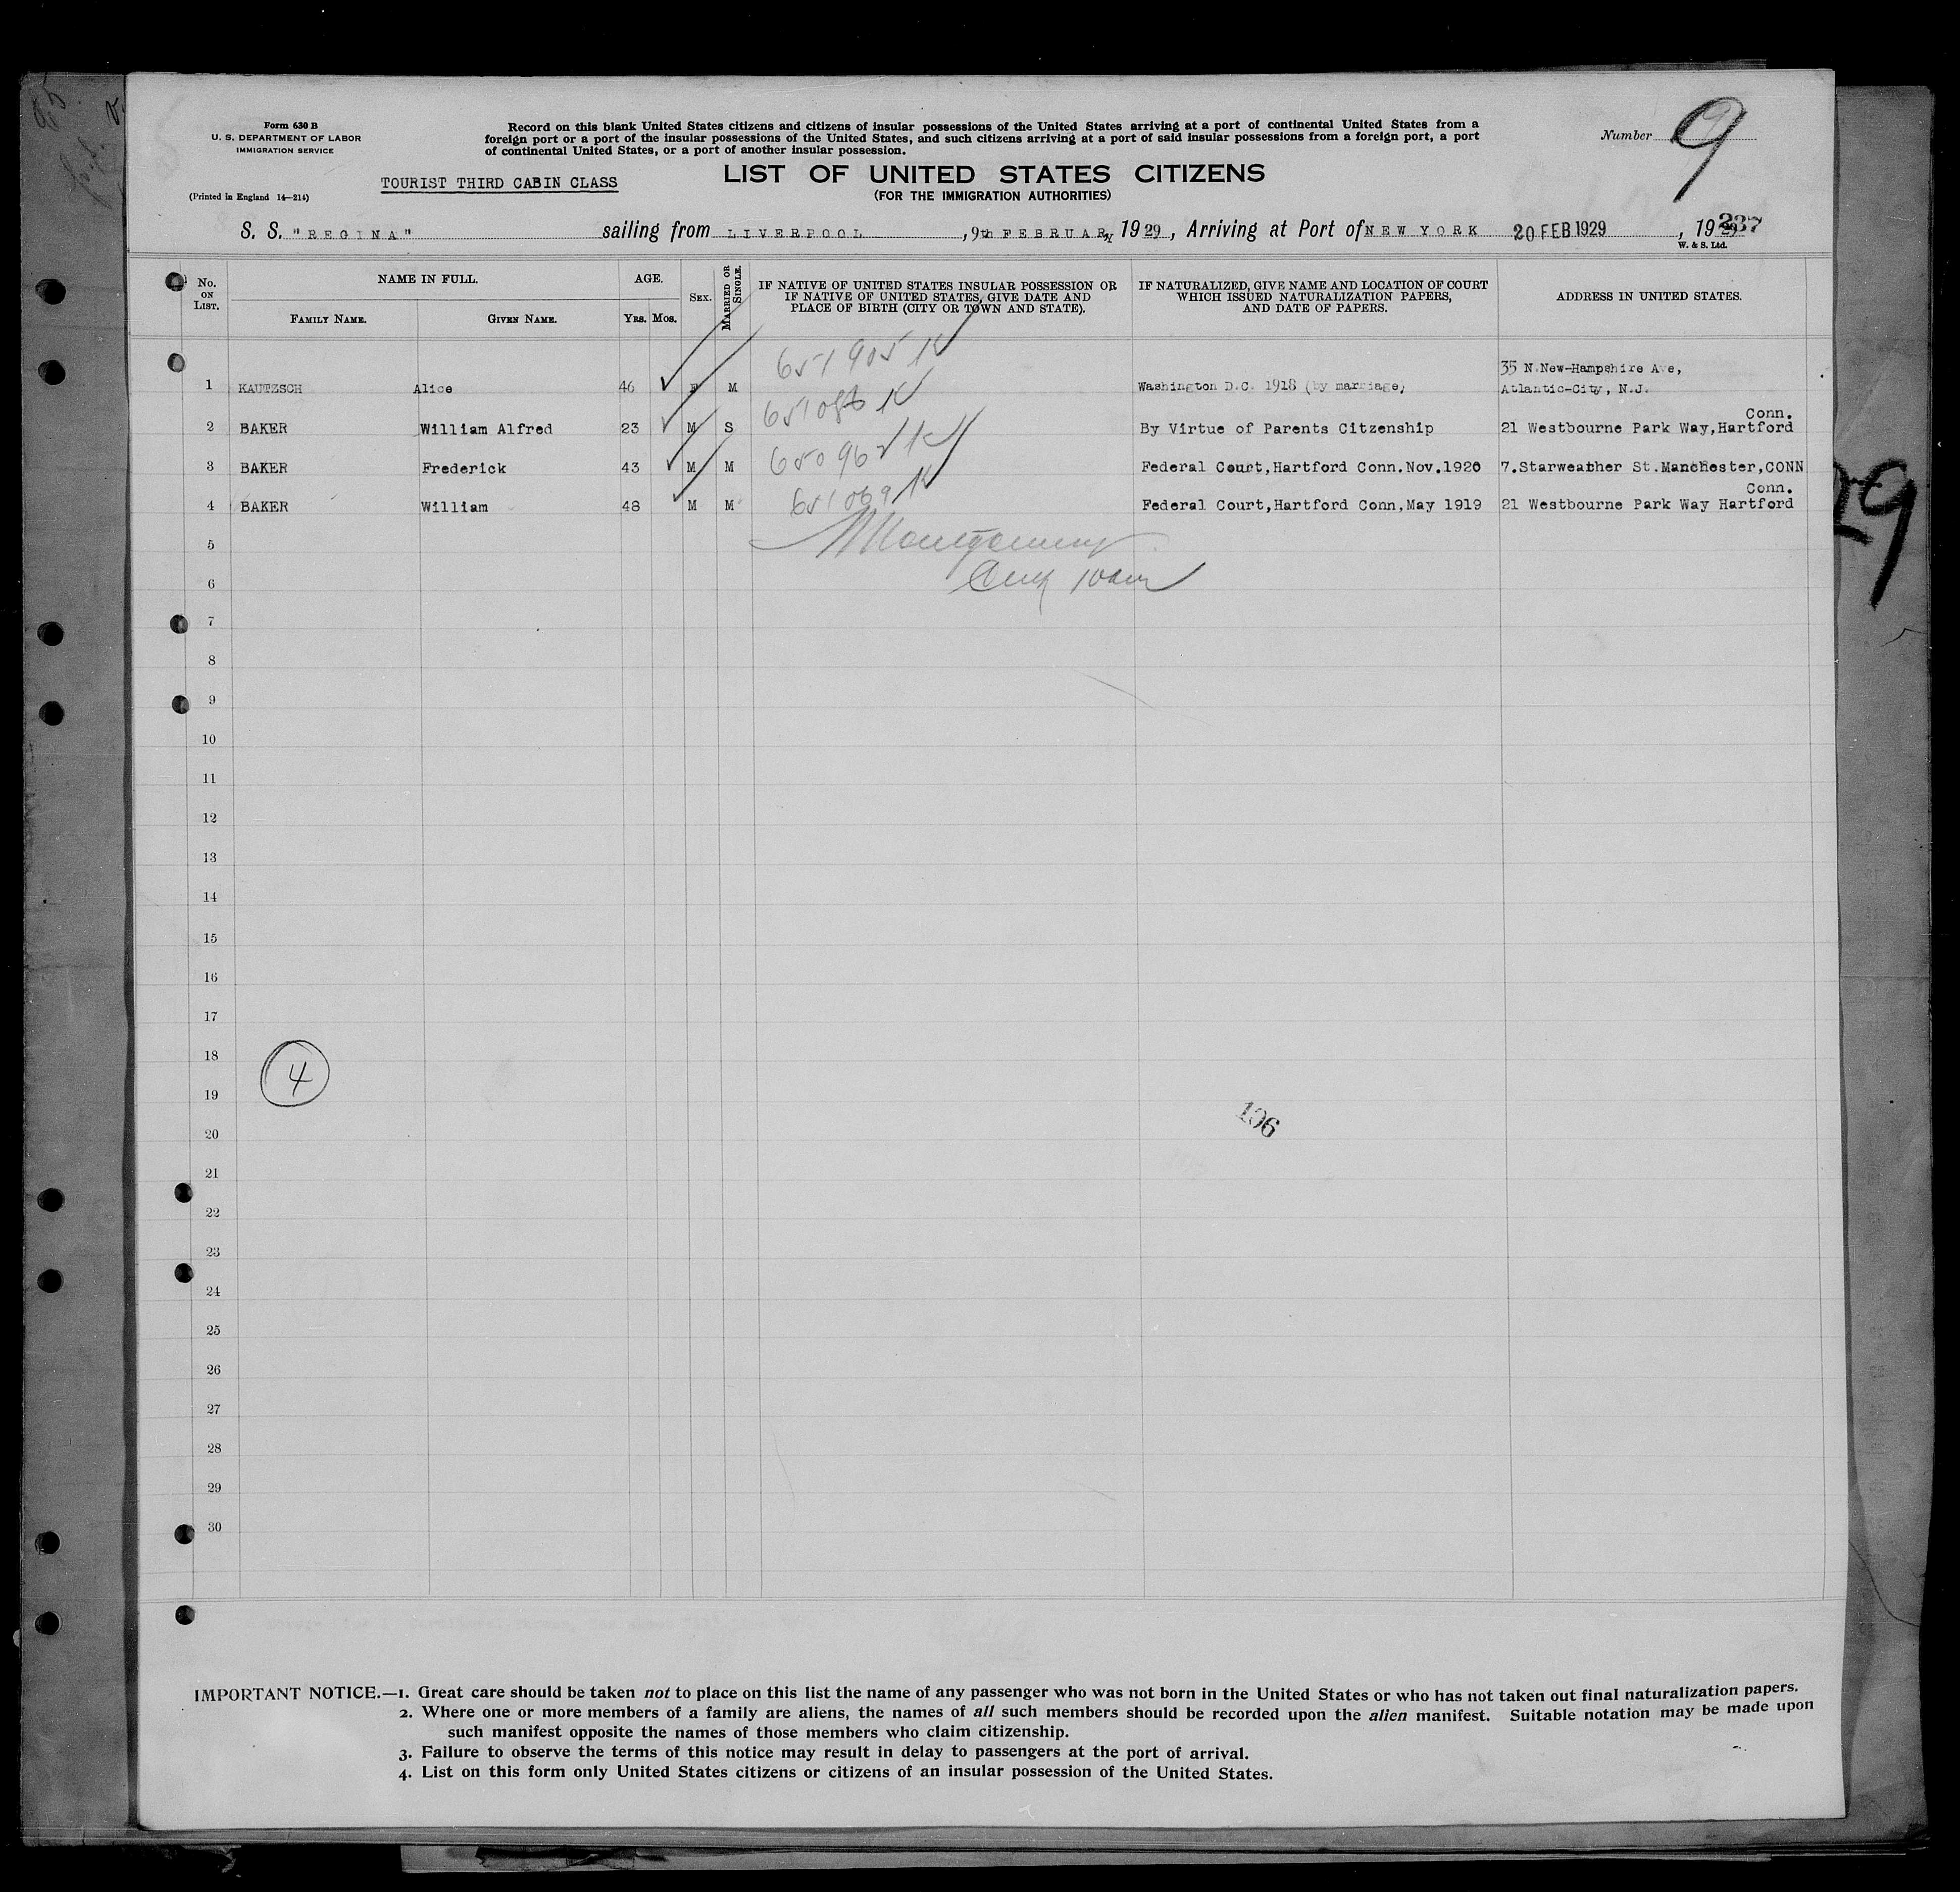 Form 630 B
U. S. DEPARTMENT OF LABOR
IMMIGRATION SERVICE
(Printed in England 14—214)
TOURIST THIRD CABIN CLASS
Record on this blank United States citizens and citizens of insular possessions of the United States arriving at a port of continental United States from a
foreign port or a port of the insular possessions of the United States, and such citizens arriving at a port of said insular possessions from a foreign port, a port
of continental United States, or a port of another insular possession.
Number 9
LIST OF UNITED STATES CITIZENS
(FOR THE IMMIGRATION AUTHORITIES)
S. S. "REGINA" sailing from LIVERPOOL, 9th FEBRUARY 1929, Arriving at Port of NEW YORK 20 FEB 1929, 19
237
W. & S. Ltd.
No. ON LIST.
NAME IN FULL.
FAMILY NAME. GIVEN NAME.
AGE.
YRS. MOS.
SEX.
MARRIED OR SINGLE.
IF NATIVE OF UNITED STATES INSULAR POSSESSION OR
IF NATIVE OF UNITED STATES, GIVE DATE AND
PLACE OF BIRTH (CITY OR TOWN AND STATE).
IF NATURALIZED, GIVE NAME AND LOCATION OF COURT
WHICH ISSUED NATURALIZATION PAPERS,
AND DATE OF PAPERS.
ADDRESS IN UNITED STATES.
35 N.New-Hampshire Ave,
1 KAUTZSCH Alice 46 F M 651905 Washington D.C. 1918 (by marriage) Atlantic-City, N.J.
Conn.
2 BAKER William Alfred 23 M S By Virtue of Parents Citzenship 21 Westbourne Park Way,Hartford
3 BAKER Frederick 43 M M 650962 Federal Court,Hartford Conn.Nov.1920 7.Starweather St.Manchester,CONN
Conn.
4 BAKER William 48 M M 651069 Federal Court,Hartford Conn,May 1919 21 Westbourne Park Way Hartford
5 Montgomery
6
7
8
9
10
11
12
13
14
15
16
17
18
4
19
106
20
21
22
23
24
25
26
27
28
29
30
29
IMPORTANT NOTICE.—1. Great care should be taken not to place on this list the name of any passenger who was not born in the United States or who has not taken out final naturalization papers.
2. Where one or more members of a family are aliens, the names of all such members should be recorded upon the alien manifest. Suitable notation may be made upon
such manifest opposite the names of those members who claim citizenship.
3. Failure to observe the terms of this notice may result in delay to passengers at the port of arrival.
4. List on this form only United States citizens or citizens of an insular possession of the United States.